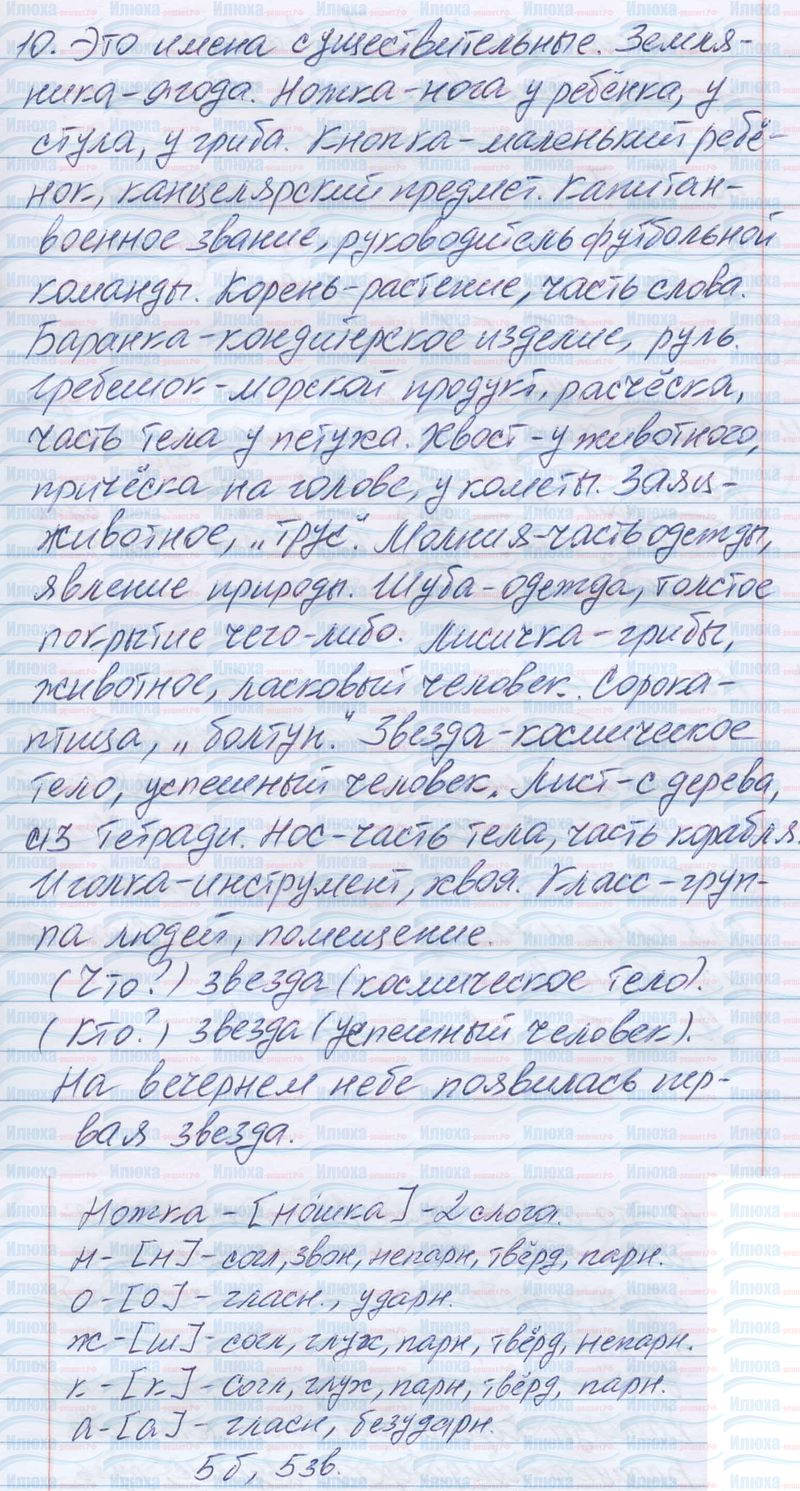 10. Это имена существительные. Земля-
ника-ягода. Ножка-нога у ребёнка, у
стула, у гриба. Кнопка-маленький ребё-
нок, канцелярский предмет. Капитан-
военное звание, руководитель футбольной
команды. Корень-растение, часть слова.
Баранка-кондитерское изделие, руль.
Гребешок-морской продукт, расчёска,
часть тела у петуха. Хвост-у животного,
причёска на голове, у кометы. Заяц-
животное, „трус". Молния-часть одежды,
явление природы. Шуба-одежда, толстое
покрытие чего-либо. Лисичка-грибы,
животное, ласковый человек. Сорока-
птица, „болтун." Звезда-космическое
тело, успешный человек. Лист-с дерева,
из тетради. Нос-часть тела, часть корабля.
Иголка-инструмент, хвоя. Класс-груп-
па людей, помещение.
(Что?) звезда (космическое тело).
(Кто?) звезда (успешный человек).
На вечернем небе появилась пер-
вая звезда.
Ножка - [но́шка] - 2 слога.
н - [н] - согл, звон, непарн, твёрд, парн.
о - [о] - гласн., ударн.
ж - [ш] - согл, глух, парн, твёрд, непарн.
к - [к] - согл, глух, парн, твёрд, парн.
а - [а] - гласн, безударн.
5б, 5зв.